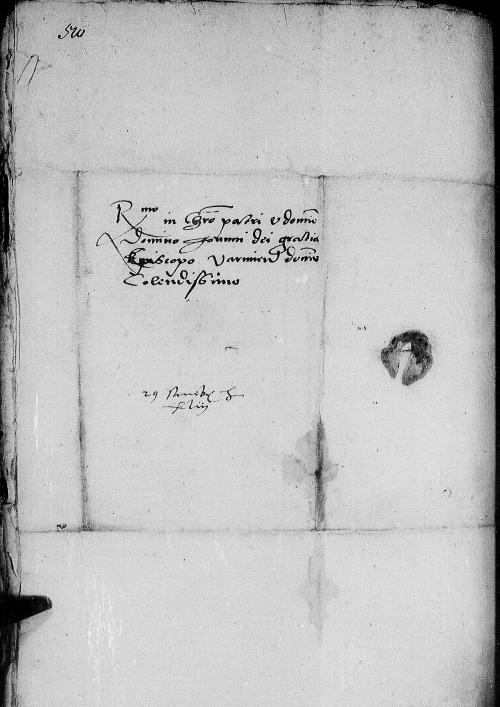 R<sup>mo</sup> in Chro patri et domio
Domino Joanni dei gratia
Episcopo Varmien domio
Colendissimo
29